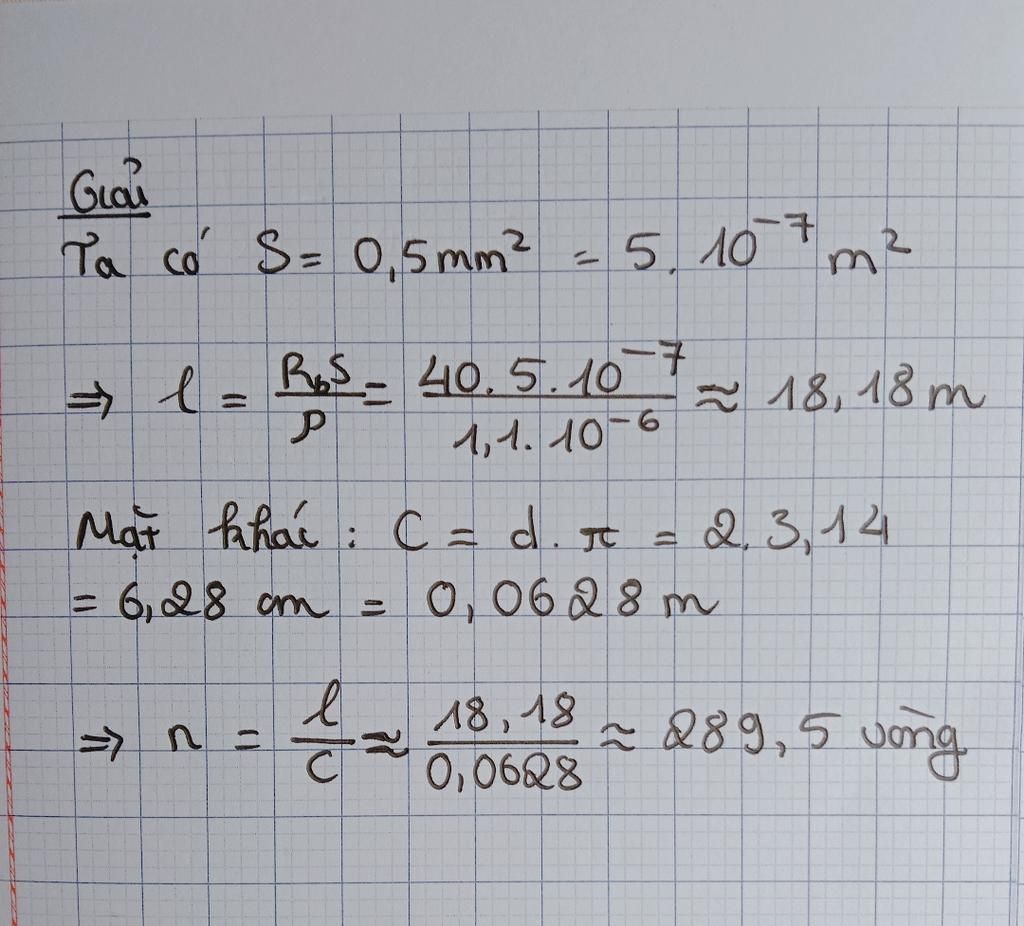 Giải
Ta có S = 0,5mm² = 5.10⁻⁷ m²
⇒ l = RbS/ρ = 40.5.10⁻⁷/1,1.10⁻⁶ ≈ 18,18 m
Mặt khác : C = d.π = 2.3,14
= 6,28 cm = 0,0628 m
⇒ n = l/C ≈ 18,18/0,0628 ≈ 289,5 vòng